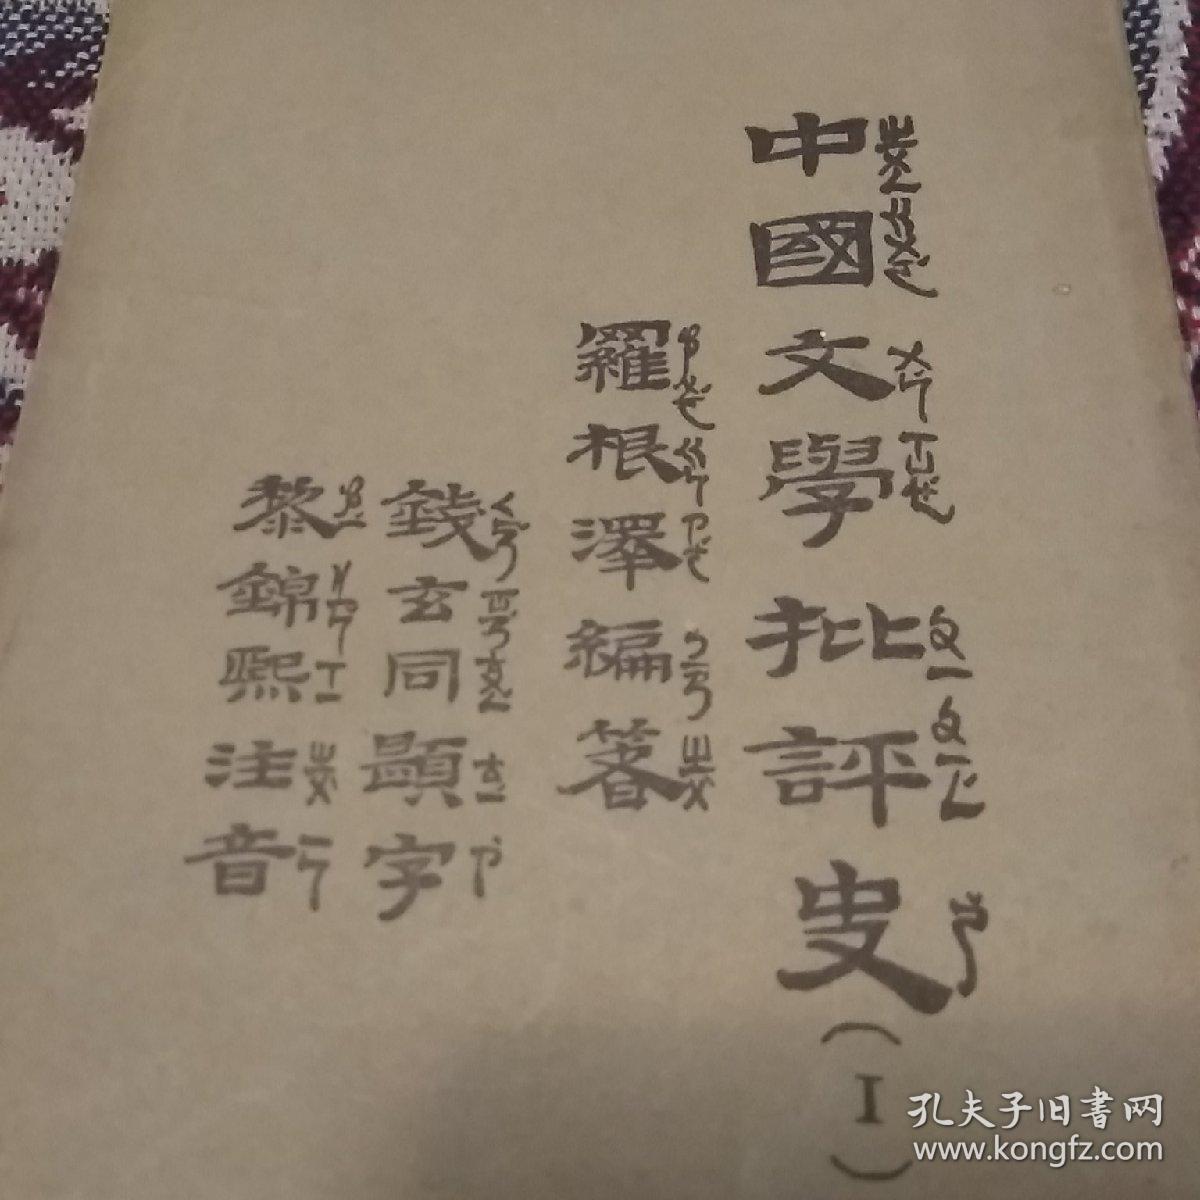 中國文學批評史
(I)
羅根澤編著
錢玄同題字
黎錦熙注音
孔夫子旧書网
www.kongfz.com